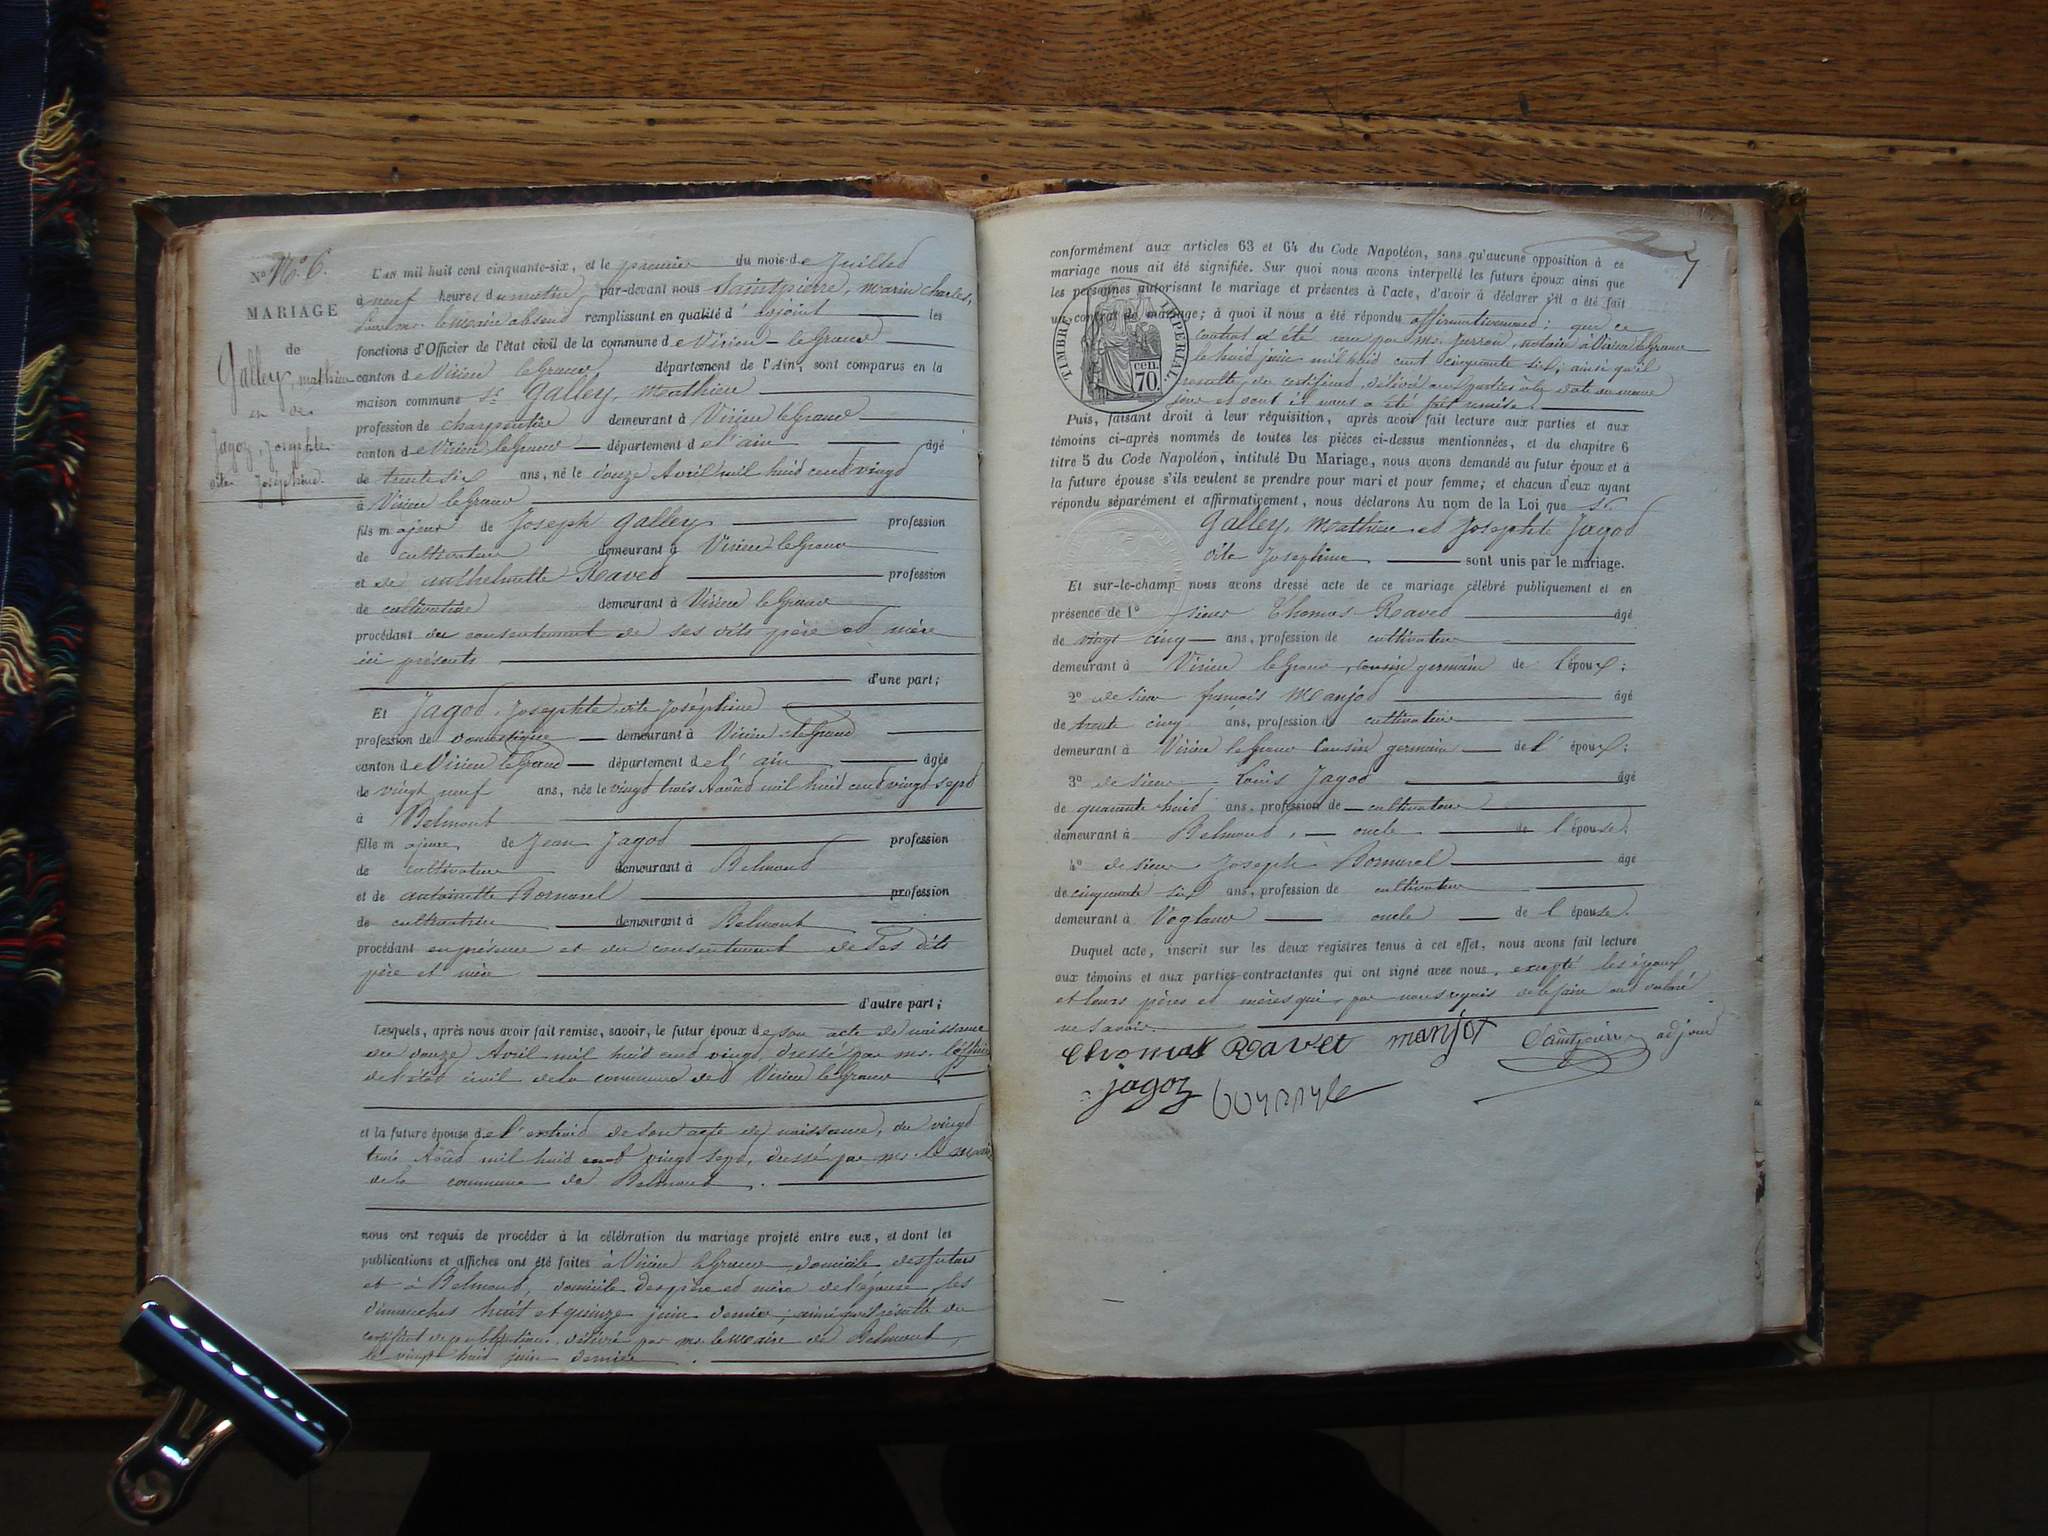 N° N° 6.
MARIAGE
de
Galley, mathieu
et de
Jagoz, Josephte
dite Joséphine.
L'an mil huit cent cinquante-six, et le premier du mois de Juillet
à neuf heures du matin, par-devant nous Saintpierre, marin charles,
le maire absent remplissant en qualité d'adjoint les
fonctions d'Officier de l'état civil de la commune de Virieu-le-Grand
canton de Virieu le Grand département de l'Ain, sont comparus en la
maison commune Sr Galley, Mathieu
profession de charpentier demeurant à Virieu le Grand
canton de Virieu le Grand département de l'ain âgé
de trente six ans, né le douze Avril mil huit cent vingt
à Virieu le Grand
fils majeur de Joseph Galley profession
de cultivateur demeurant à Virieu le Grand
et de anthelmette Ravet profession
de cultivatrice demeurant à Virieu le Grand
procédant du consentement de ses dits père et mère
ici présents
d'une part;
Et Jagod, Josephte dite Joséphine
profession de domestique demeurant à Virieu le Grand
canton de Virieu le Grand département de l'ain âgée
de vingt neuf ans, née le vingt trois Août mil huit cent vingt sept
à Belmont
fille majeure de Jean Jagod profession
de cultivateur demeurant à Belmont
et de antoinette Bornarel profession
de cultivatrice demeurant à Belmont
procédant en présence et du consentement de ses dits
père et mère
d'autre part;
Lesquels, après nous avoir fait remise, savoir, le futur époux de son acte de naissance
du douze Avril mil huit cent vingt, dressé par mr. l'officier
de l'état civil de la commune de Virieu le Grand
et la future épouse de l'extrait de son acte de naissance, du vingt
trois Août mil huit cent vingt sept, dressé par mr. le maire
de la commune de Belmont.
nous ont requis de procéder à la célébration du mariage projeté entre eux, et dont les
publications et affiches ont été faites à Virieu le Grand domicile des futurs
et à Belmont, domicile des père et mère de l'épouse, les
dimanches huit et quinze juin dernier; ainsi qu'il résulte du
certificat de publication délivré par mr. le maire de Belmont,
le vingt huit juin dernier.
7
conformément aux articles 63 et 64 du Code Napoléon, sans qu'aucune opposition à ce
mariage nous ait été signifiée. Sur quoi nous avons interpellé les futurs époux ainsi que
les personnes autorisant le mariage et présentes à l'acte, d'avoir à déclarer s'il a été fait
un contrat de mariage; à quoi il nous a été répondu affirmativement: que ce
contrat a été reçu par mr. notaire à Virieu le Grand
le huit juin mil huit cent cinquante six; ainsi qu'il
résulte du certificat délivré aux parties à la date du même
jour et dont il nous a été fait remise.
TIMBRE IMPERIAL.
70 cen.
Puis, faisant droit à leur réquisition, après avoir fait lecture aux parties et aux
témoins ci-après nommés de toutes les pièces ci-dessus mentionnées, et du chapitre 6
titre 5 du Code Napoléon, intitulé Du Mariage, nous avons demandé au futur époux et à
la future épouse s'ils veulent se prendre pour mari et pour femme; et chacun d'eux ayant
répondu séparément et affirmativement, nous déclarons Au nom de la Loi que Sr
Galley, Mathieu et Josephte Jagod
dite Joséphine sont unis par le mariage.
Et sur-le-champ nous avons dressé acte de ce mariage célébré publiquement et en
présence de 1° sieur Thomas Ravet âgé
de vingt cinq ans, profession de cultivateur
demeurant à Virieu le Grand, cousin germain de l'époux;
2° de sieur françois Manjod âgé
de trente cinq ans, profession de cultivateur
demeurant à Virieu le Grand cousin germain de l'époux;
3° de sieur Louis Jagod âgé
de quarante huit ans, profession de cultivateur
demeurant à Belmont, oncle de l'épouse;
4° de sieur Joseph Bornarel âgé
de cinquante six ans, profession de cultivateur
demeurant à Vogland oncle de l'épouse.
Duquel acte, inscrit sur les deux registres tenus à cet effet, nous avons fait lecture
aux témoins et aux parties contractantes qui ont signé avec nous, excepté les époux
et leurs pères et mères qui, par nous requis de le faire ont déclaré
ne savoir.
thomas Ravet manjot Saintpierre adjoint
jagoz